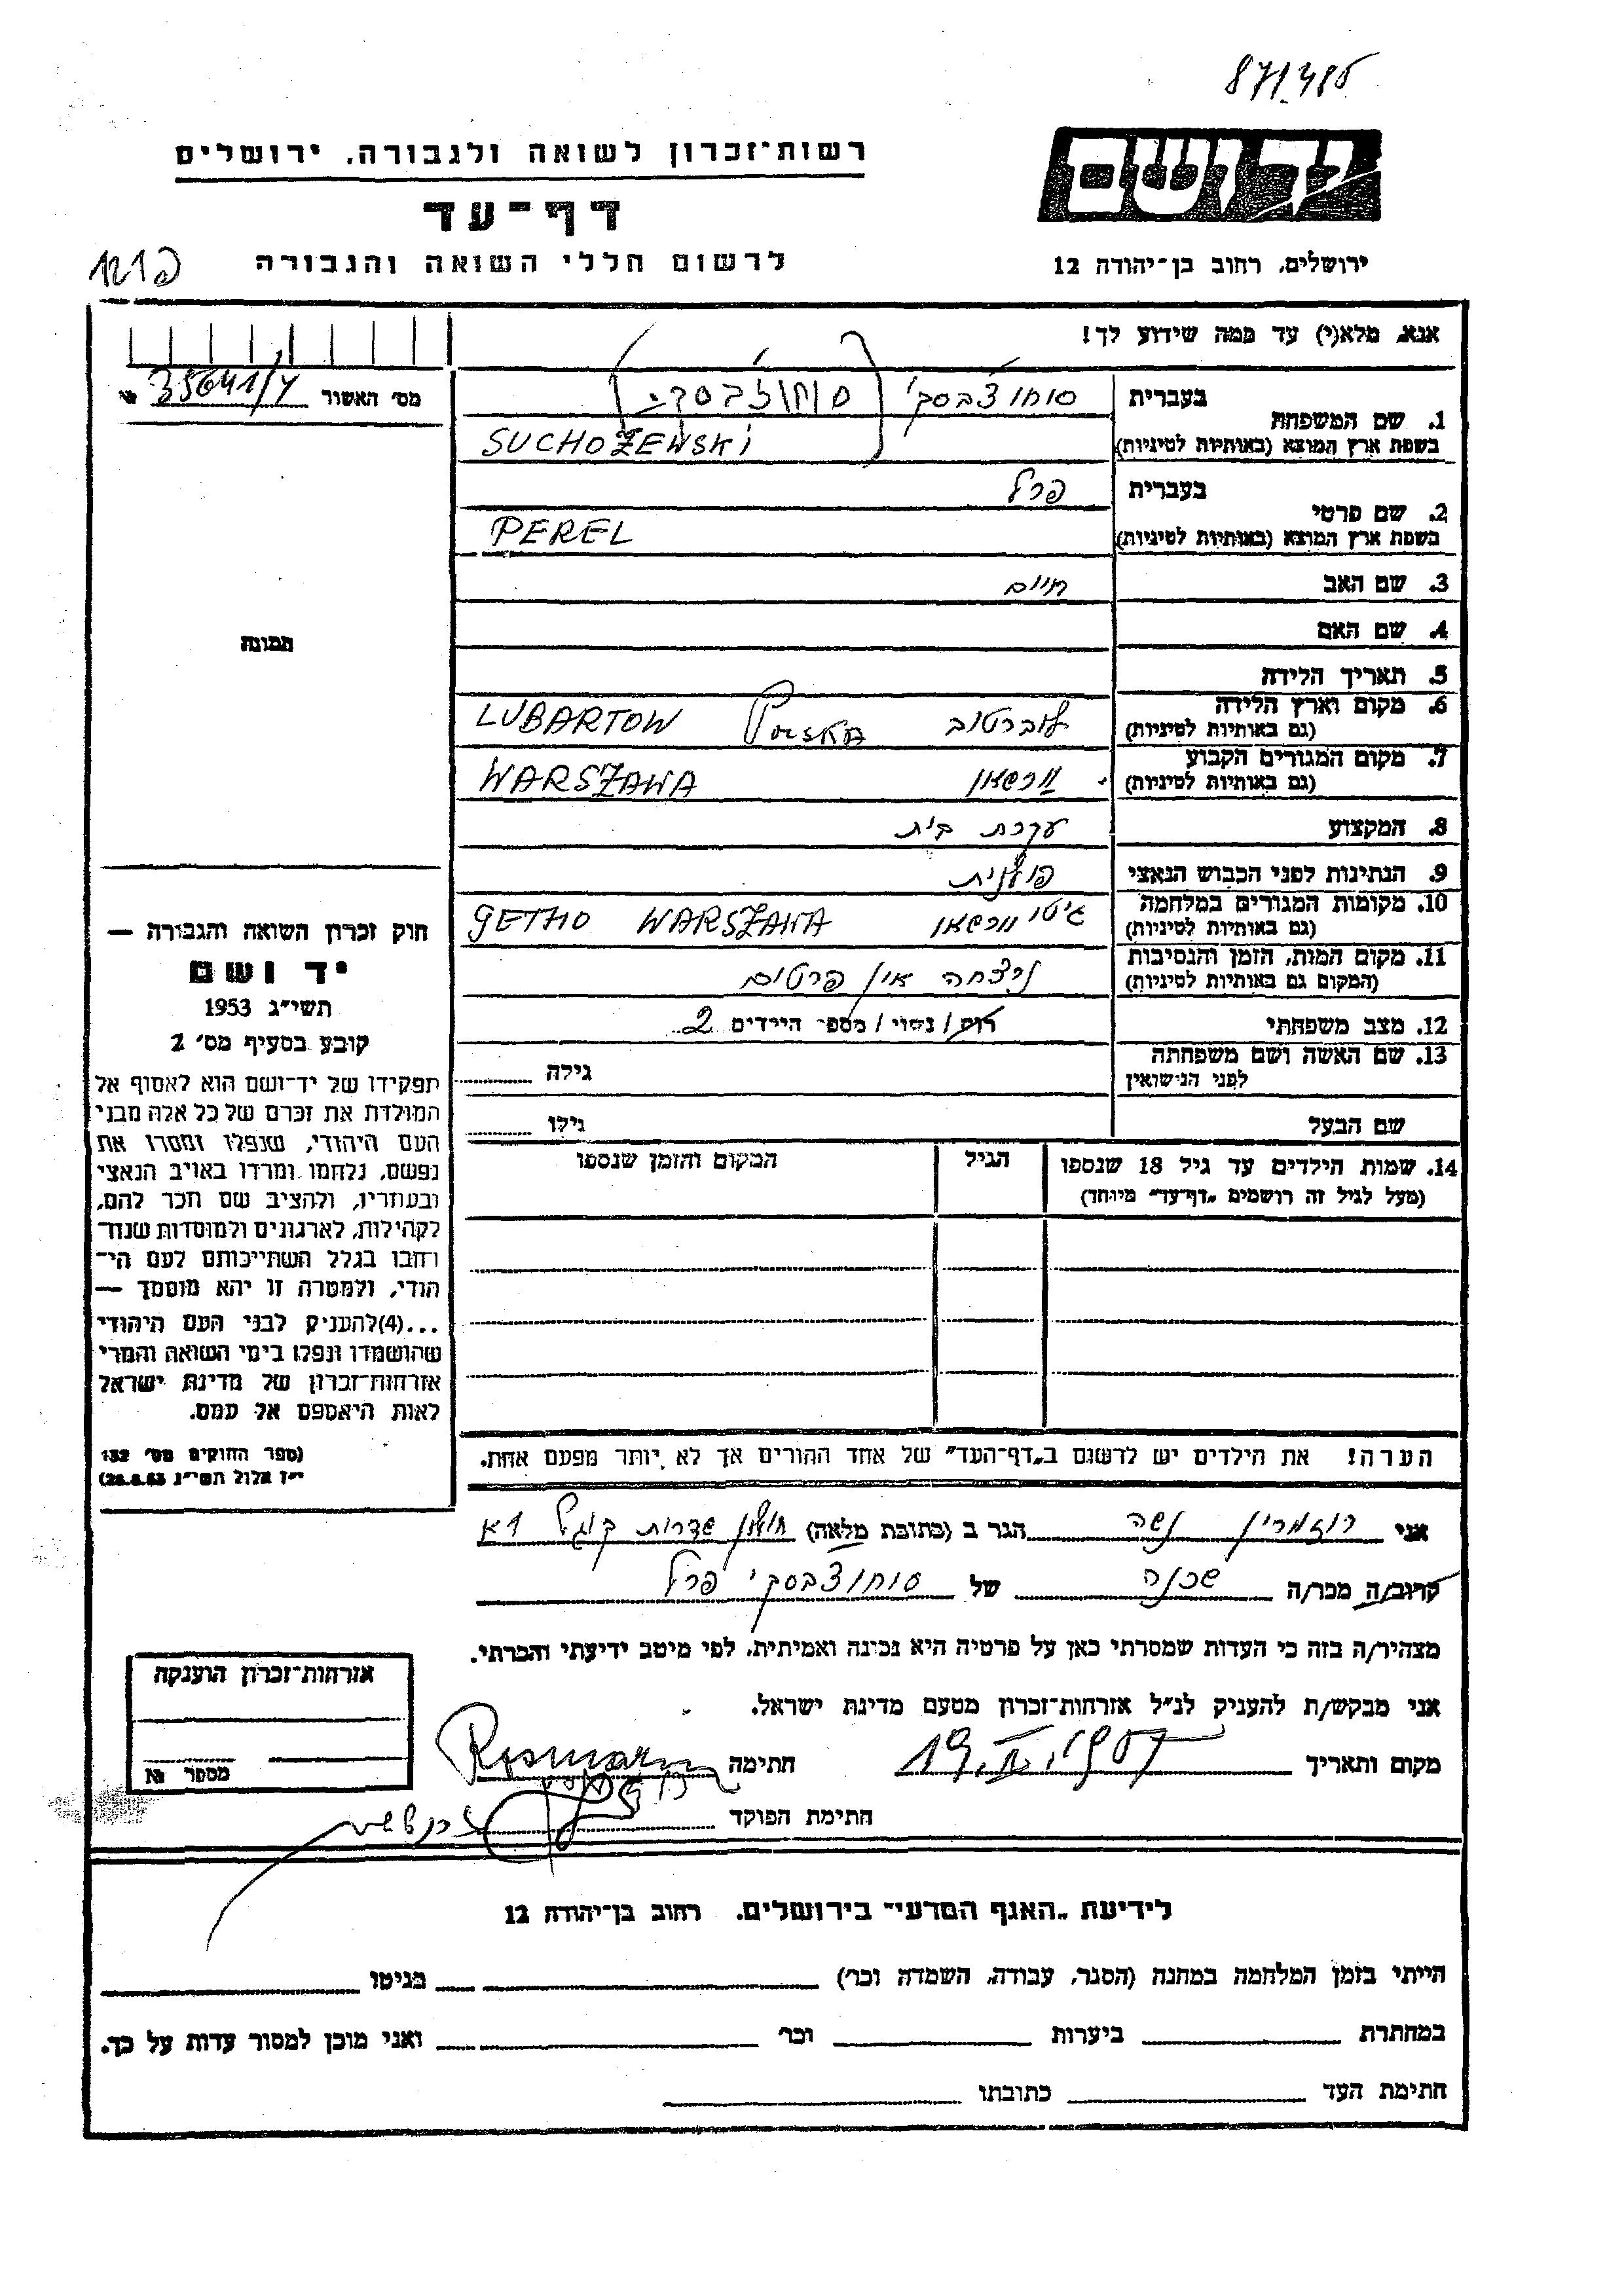 871.415
יד ושם
רשות־זכרון לשואה ולגבורה, ירושלים
דף־עד
לרשום חללי השואה והגבורה
ירושלים, רחוב בן־יהודה 12
אנא, מלא(י) עד כמה שידוע לך!
מס׳ האשור 35641/4 №
1. שם המשפחה
בעברית סוחוצ׳בסקי (סוחוז׳בסקי)
בשפת ארץ המוצא (באותיות לטיניות) SUCHOŻEWSKI
2. שם פרטי
בעברית פרל
בשפת ארץ המוצא (באותיות לטיניות) PEREL
3. שם האב חיים
4. שם האם
5. תאריך הלידה
6. מקום וארץ הלידה לוברטוב POLSKA LUBARTOW
(גם באותיות לטיניות)
7. מקום המגורים הקבוע וורשאו WARSZAWA
(גם באותיות לטיניות)
8. המקצוע עקרת בית
9. הנתינות לפני הכבוש הנאצי פולנית
10. מקומות המגורים במלחמה גיטו וורשאו GETHO WARSZAWA
(גם באותיות לטיניות)
11. מקום המות, הזמן והנסיבות נרצחה אין פרטים
(המקום גם באותיות לטיניות)
12. מצב משפחתי רוק / נשוי / מספר הילדים 2
13. שם האשה ושם משפחתה גילה
לפני הנישואין
שם הבעל גילו
14. שמות הילדים עד גיל 18 שנספו הגיל המקום והזמן שנספו
(מעל לגיל זה רושמים „דף־עד״ מיוחד)
הערה! את הילדים יש לרשום ב„דף־העד״ של אחד ההורים אך לא יותר מפעם אחת.
תמונה
חוק זכרון השואה והגבורה —
יד ושם
תשי״ג 1953
קובע בסעיף מס׳ 2
תפקידו של יד־ושם הוא לאסוף אל
המולדת את זכרם של כל אלה מבני
העם היהודי, שנפלו ומסרו את
נפשם, נלחמו ומרדו באויב הנאצי
ובעוזריו, ולהציב שם וזכר להם,
לקהילות, לארגונים ולמוסדות שנח־
רבו בגלל השתייכותם לעם הי־
הודי, ולמטרה זו יהא מוסמך —
...(4)להעניק לבני העם היהודי
שהושמדו ונפלו בימי השואה והמרי
אזרחות־זכרון של מדינת ישראל
לאות היאספם אל עמם.
(ספר החוקים מס׳ 132
י״ז אלול תשי״ג 28.8.53)
אני רוזמרין נשה הגר ב (כתובת מלאה) חולון שדרות קוגל 1א
קרוב/ה מכר/ה שכנה של סוחוצבסקי פרל
מצהיר/ה בזה כי העדות שמסרתי כאן על פרטיה היא נכונה ואמיתית, לפי מיטב ידיעתי והכרתי.
אני מבקש/ת להעניק לנ״ל אזרחות־זכרון מטעם מדינת ישראל.
מקום ותאריך 19.II.1957 חתימה Rosmarin
חתימת הפוקד
אזרחות־זכרון הוענקה
מספר №
לידיעת „האגף המדעי״ בירושלים, רחוב בן־יהודה 12
הייתי בזמן המלחמה במחנה (הסגר, עבודה, השמדה וכר׳) בגיטו
במחתרת ביערות וכר׳ ואני מוכן למסור עדות על כך.
חתימת העד כתובתו